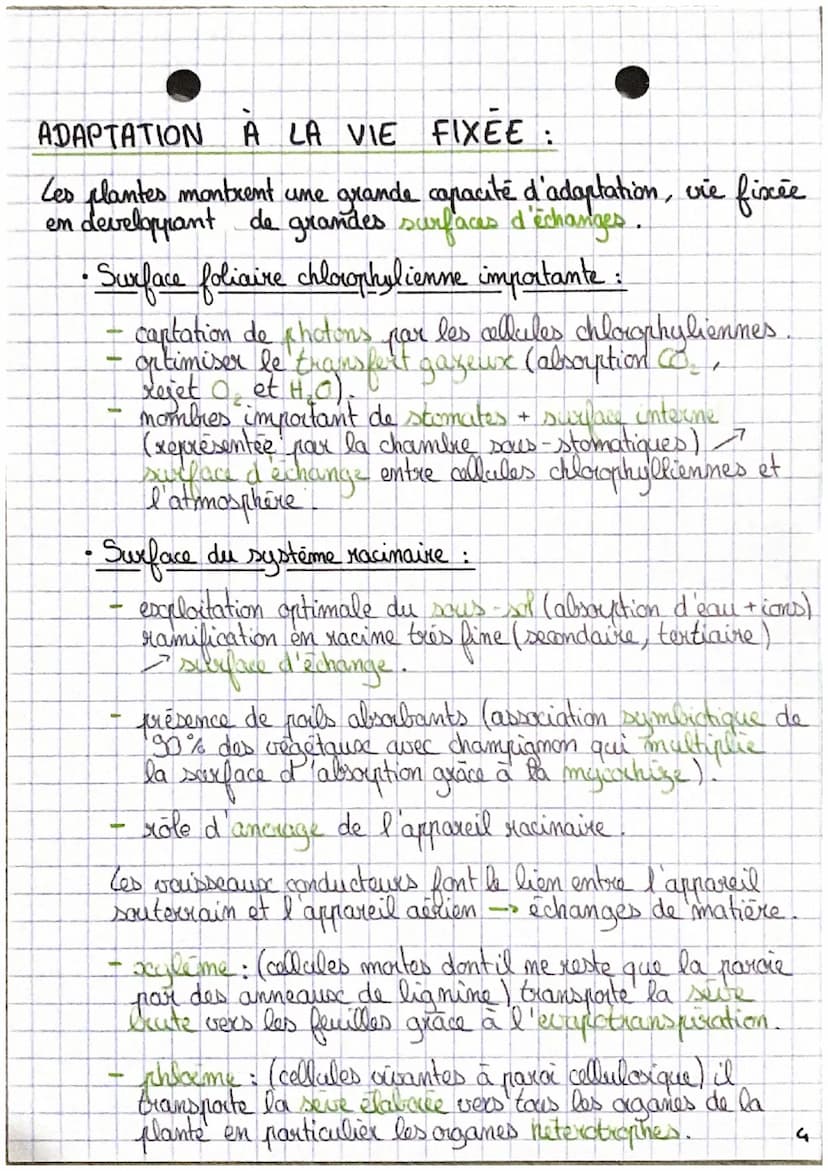 ADAPTATION À LA VIE FIXÉE :
Les plantes montrent une grande capacité d'adaptation, vie fixée
en developpant de grandes surfaces d'échanges.
• Surface foliaire chlorophylienne importante :
- captation de photons par les cellules chlorophyliennes.
- optimiser le transfert gazeux (absorption CO₂,
rejet O₂ et H₂O).
- nombres important de stomates + surface interne
(représentée par la chambre sous-stomatiques) ↗
surface d'échange entre cellules chlorophylliennes et
l'atmosphère.
• Surface du système racinaire :
- exploitation optimale du sous-sol (absorption d'eau + ions)
ramification en racine très fine (secondaire, tertiaire)
↗ surface d'échange.
- présence de poils absorbants (association symbiotique de
90% des végétaux avec champignon qui multiplie
la surface d'absorption grâce à la mycorhize).
- rôle d'ancrage de l'appareil racinaire.
Les vaisseaux conducteurs font le lien entre l'appareil
souterrain et l'appareil aérien → échanges de matière.
- xylème : (cellules mortes dont il ne reste que la paroie
par des anneaux de lignine) transporte la sève
brute vers les feuilles grâce à l'evapotranspiration.
- phloème : (cellules vivantes à paroi cellulosique) il
transporte la sève élaborée vers tous les organes de la
plante en particulier les organes heterotrophes.
4